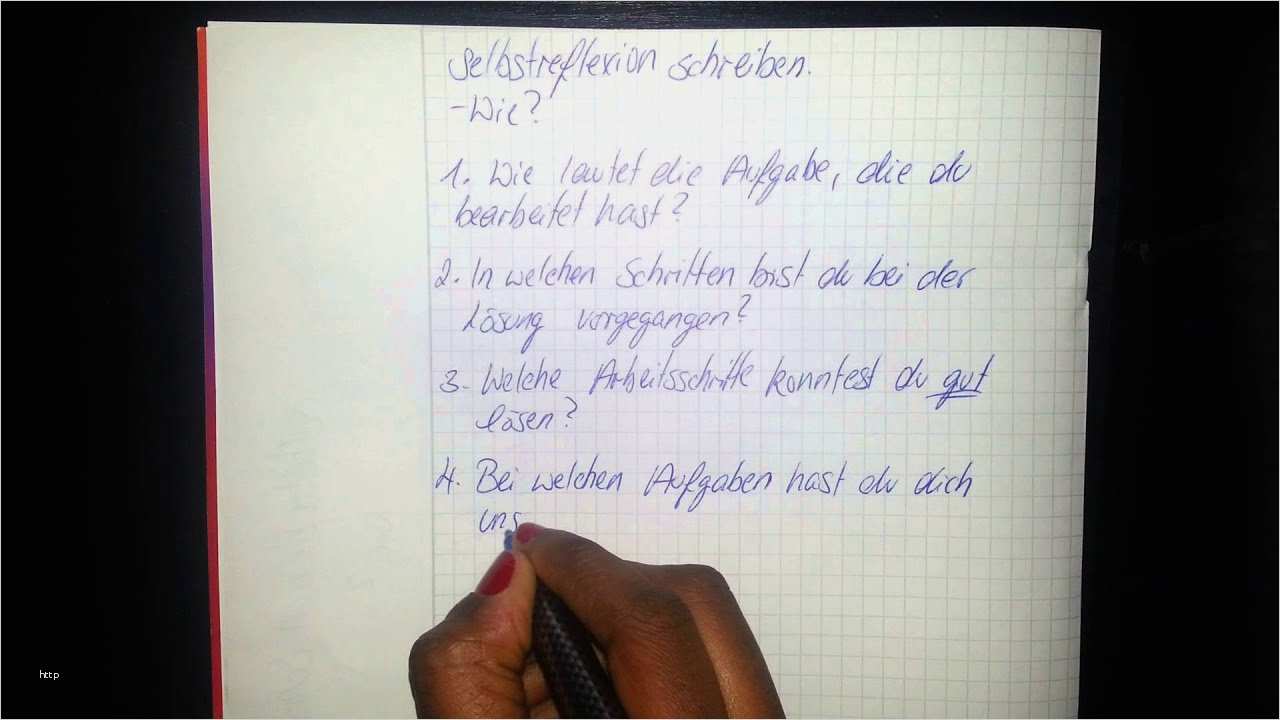 Selbstreflexion schreiben.
-Wie?
1. Wie lautet die Aufgabe, die du
bearbeitet hast?
2. In welchen Schritten bist du bei der
Lösung vorgegangen?
3. Welche Arbeitsschritte konntest du gut
lösen?
4. Bei welchen Aufgaben hast du dich
uns
http